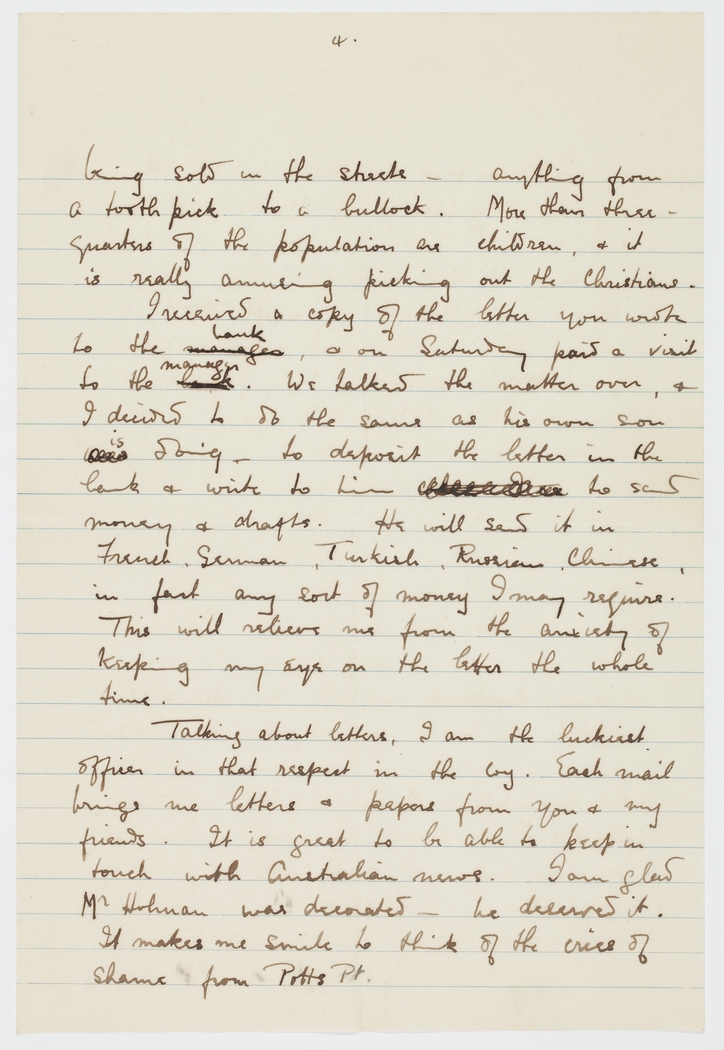 4.
being sold in the streets – anything from
a tooth pick to a bullock. More than three-
quarters of the population are children, & it
is really amusing picking out the Christians.
I received a copy of the letter you wrote
bank
to the manager, & on Saturday paid a visit
manager
to the bank. We talked the matter over, &
I decided to do the same as his own son
is
doing – to deposit the letter in the
bank & write to him to send
money & drafts. He will send it in
French, German, Turkish, Russian, Chinese,
in fact any sort of money I may require.
This will relieve me from the anxiety of
keeping my eye on the letter the whole
time.
Talking about letters, I am the luckiest
officer in that respect in the coy. Each mail
brings me letters & papers from you & my
friends. It is great to be able to keep in
touch with Australian news. I am glad
Mr Holman was decorated – he deserved it.
It makes me smile to think of the cries of
shame from Potts Pt.